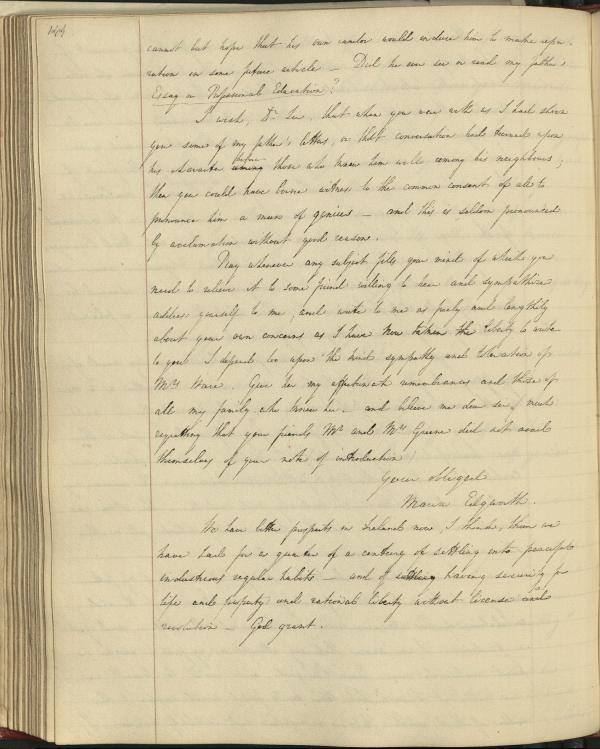 144
cannot but hope that his own candor would induce him to make repa-
ration in some future article — Did he ever see or read my father's
Essay on Professional Education?
I wish, Dr Sir, that when you were with us I had shown
you some of my father's letters, or that conversation had turned upon
his character before those who knew him well among his neighbours;
then you could have borne witness to the common consent of all to
pronounce him a man of genius — and this is seldom pronounced
by acclamation without good reason.
Nay whenever any subject fills your mind of which you
need to relieve it to some friend willing to hear and sympathise
address yourself to me, and write to me as freely and lengthily
about your own concerns as I have now taken the liberty to write
to you. I depend too upon the kind sympathy and toleration of
Mrs Ware. Give her my affectionate remembrances and those of
all my family who know her. and believe me dear sir, much
regretting that your friends Mr and Mrs Greene did not avail
themselves of your note of introduction
Your obliged
Maria Edgworth.
We have better prospects in Ireland now, I think, than we
have had for a quarter of a century of settling into peaceful
industrious regular habits — and of having security for
life and property and rational liberty without license or
revolution — God grant.